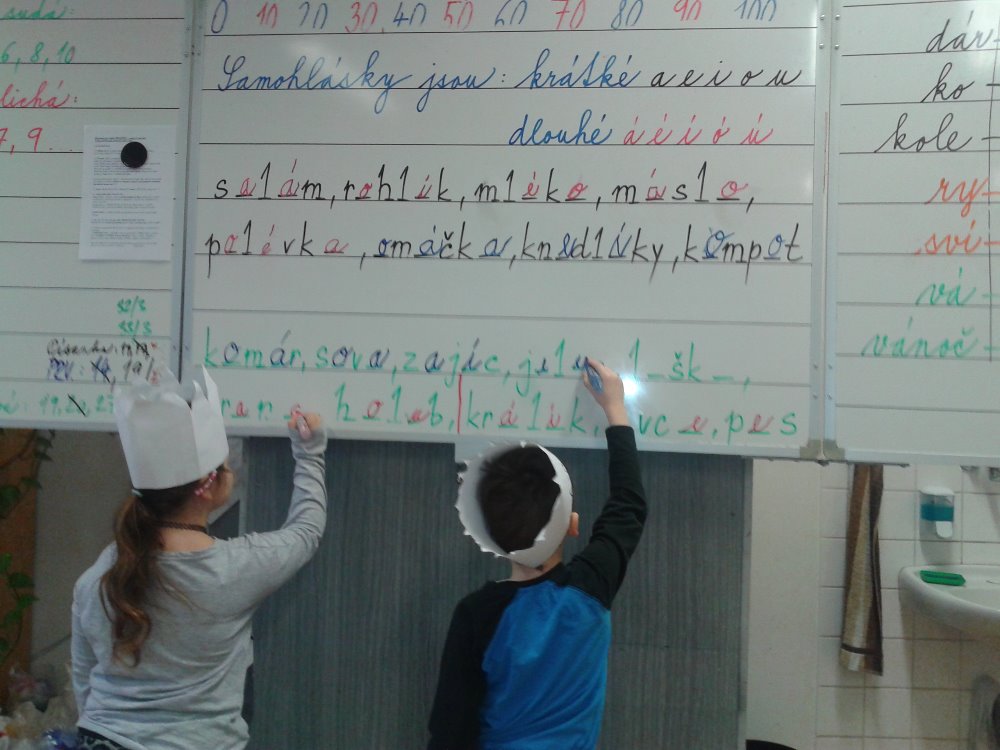 sudá:
6, 8, 10
lichá:
7, 9...
0 10 20 30 40 50 60 70 80 90 100
Samohlásky jsou: krátké a e i o u
dlouhé á é í ó ú
salám, rohlík, mléko, máslo,
polévka, omáčka, knedlíky, kompot
komár, sova, zajíc, jelen, l_šk_,
holub, králík, vce, pes
dár-
ko-
kole-
ry-
sví-
vá-
vánoč-